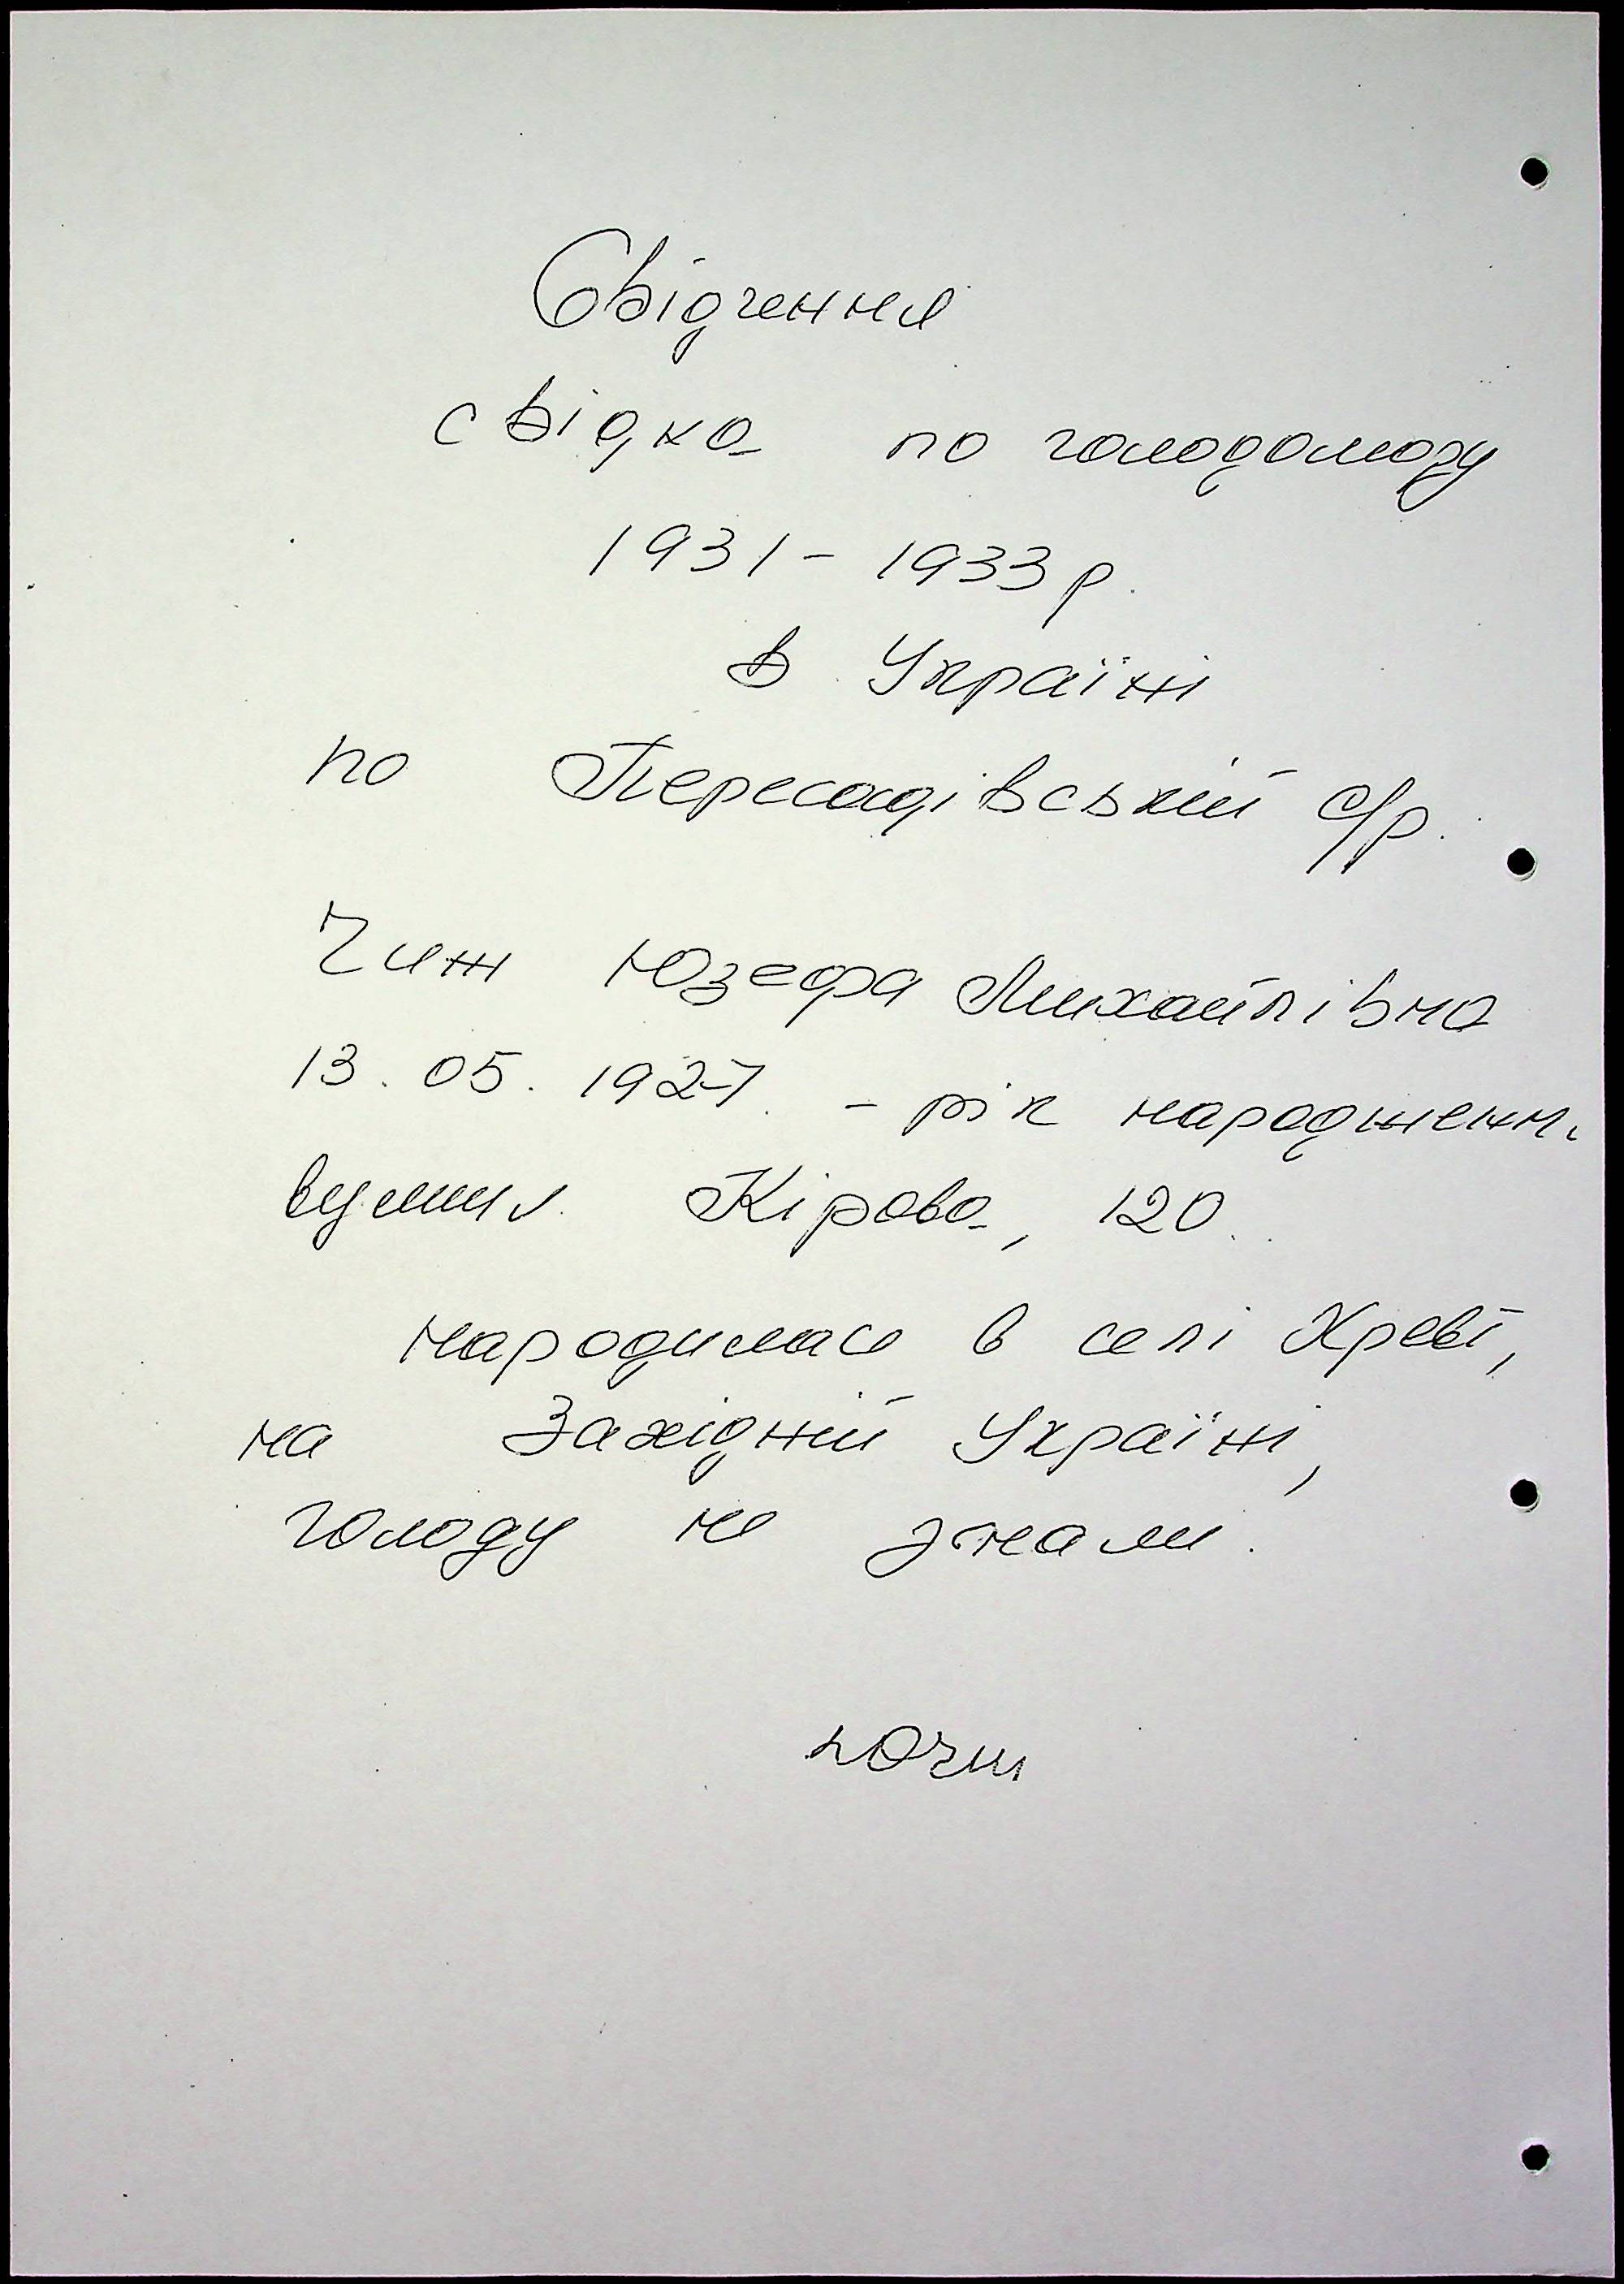 Свідчення
свідка по голодомору
1931-1933 р.
в Україні
по Пересадівській с/р.
Чиж Юзефа Михайлівна
13.05.1927. - рік народженн.
вулиця Кірова, 120.
народилась в селі
на Західній Україні,
голоду не знали.